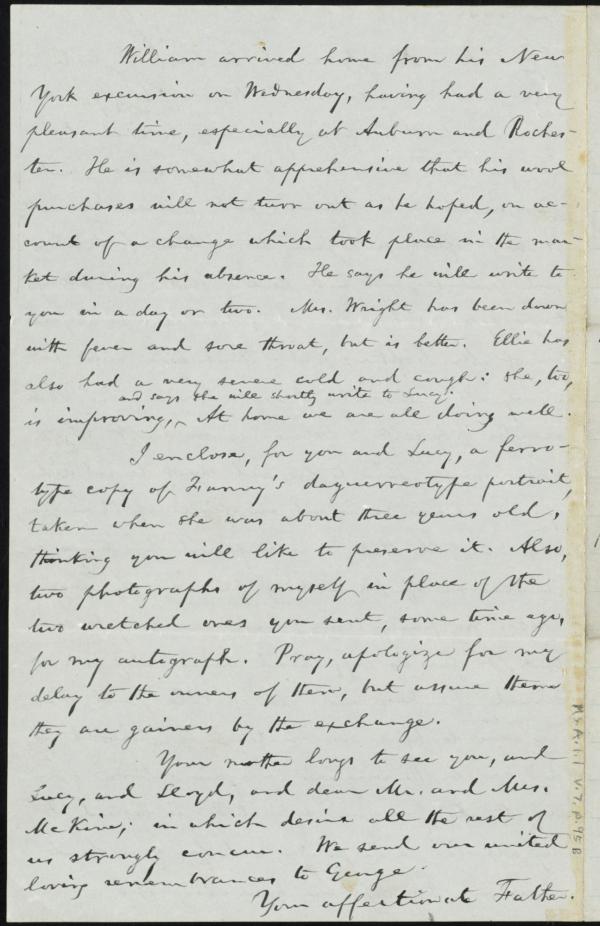 William arrived home from his New
York excursion on Wednesday, having had a very
pleasant time, especially at Auburn and Roches-
ter. He is somewhat apprehensive that his wool
purchases will not turn out as he hoped, on ac-
count of a change which took place in the mar-
ket during his absence. He says he will write to
you in a day or two. Mrs. Wright has been down
with fever and sore throat, but is better. Ellie has
also had a very severe cold and cough: she, too,
and says she will shortly write to Lucy.
is improving,^ At home we are all doing well.
I enclose, for you and Lucy, a ferro-
type copy of Fanny's daguerreotype portrait,
taken when she was about three years old,
thinking you will like to preserve it. Also,
two photographs of myself in place of the
two wretched ones you sent, some time ago,
for my autograph. Pray, apologize for my
delay to the owners of them, but assure them
they are gainers by the exchange.
Your mother longs to see you, and
Lucy, and Lloyd, and dear Mr. and Mrs.
McKim; in which desire all the rest of
us strongly concur. We send our united
loving remembrances to George.
Your affectionate Father.
Ms.A.1.1 V.7, p.95B